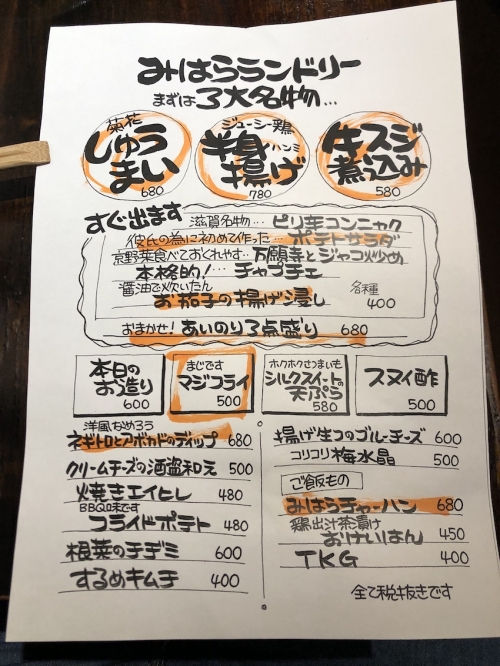 みはらランドリー
まずは3大名物…
菊花
しゅうまい
680
ジューシー鶏
半身揚げ
ハンミ
780
牛スジ
煮込み
580
すぐ出ます
滋賀名物… ピリ辛コンニャク
彼氏の為に初めて作った… ポテトサラダ
京野菜食べておくれやす… 万願寺とジャコ炒め
本格的!… チャプチェ
醤油で炊いたん
お茄子の揚げ浸し
各種
400
おまかせ!あいのり3点盛り 680
本日の
お造り
600
まじです
マジフライ
500
ホクホクさつまいも
シルクスイートの
天ぷら
580
スヌイ酢
500
洋風なめろう
ネギトロとアボカドのディップ 680
クリームチーズの酒盗和え 500
焼きエイヒレ 480
BBQ味です
フライドポテト 480
根菜のチヂミ 600
するめキムチ 400
揚げ生つのゴルーチーズ 600
コリコリ梅水晶 500
ご飯もの
みはらチャーハン 680
鶏出汁茶漬け
おけいはん 450
TKG 400
全て税抜きです